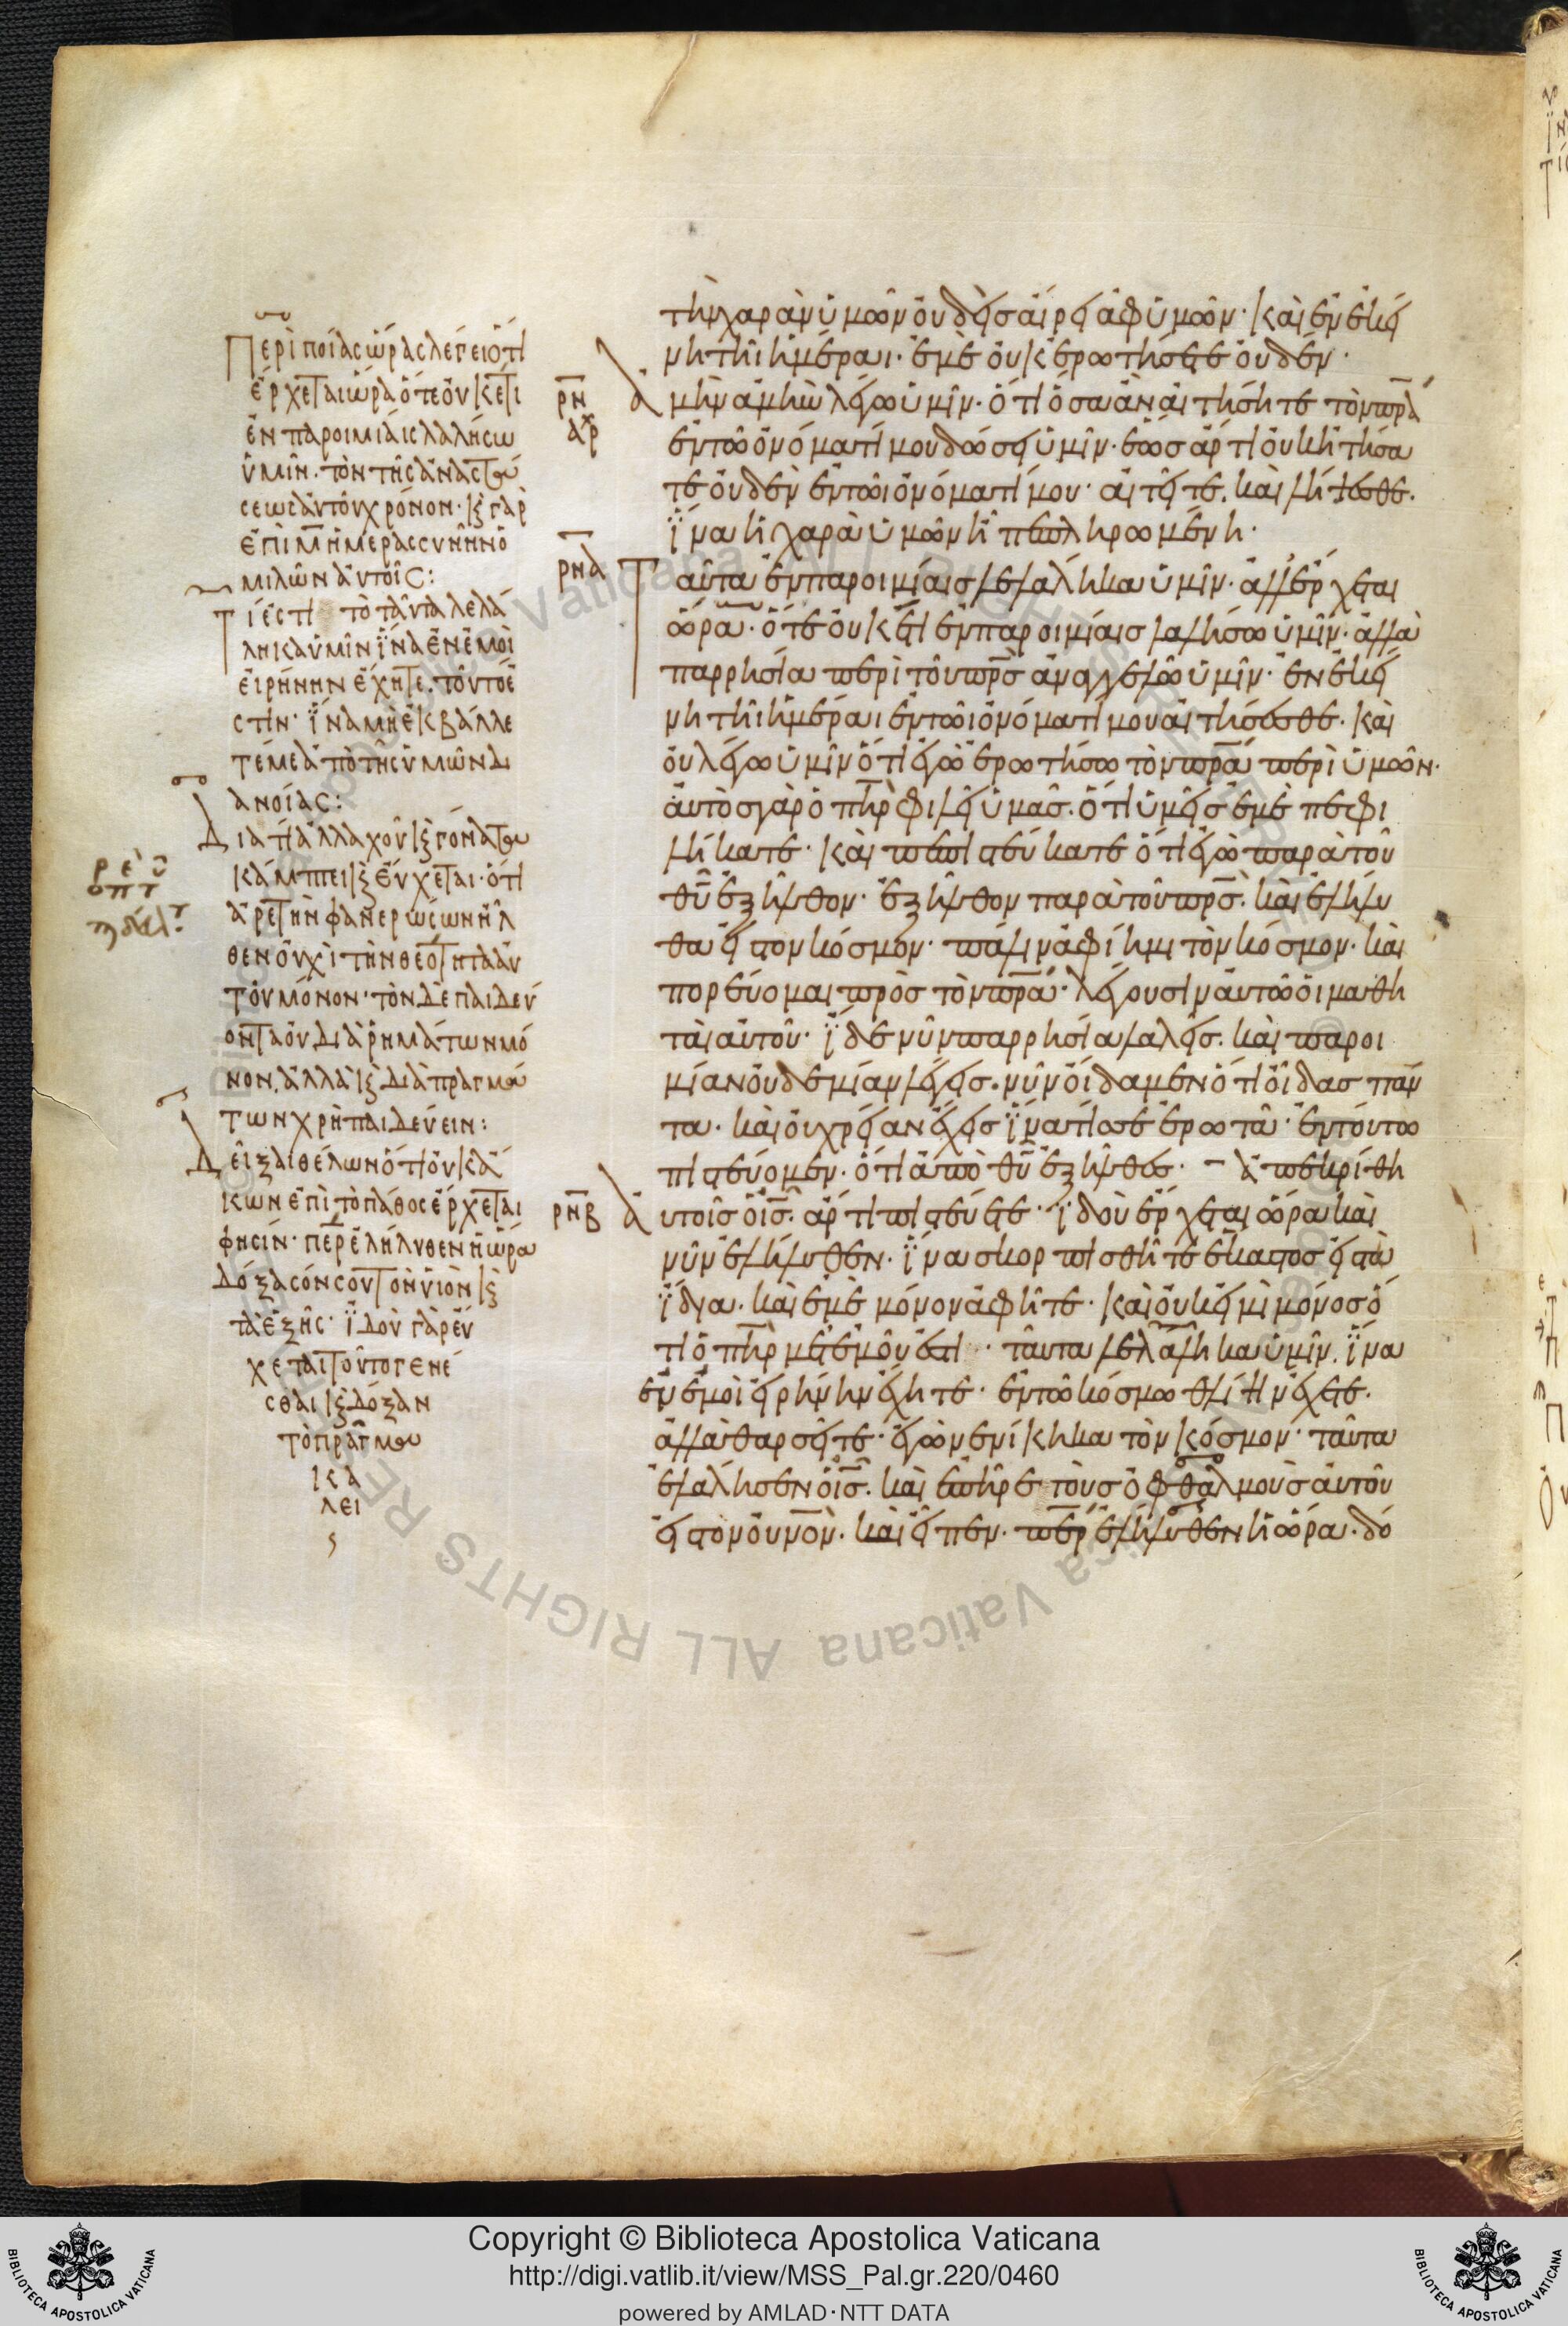 Περὶ ποίας ὥρας λέγει ὅτι
ἔρχεται ὥρα ὅτε οὐκέτι
ἐν παροιμίαις λαλήσω
ὑμῖν· τὸν τῆς ἀναστά
σεως αὐτοῦ χρόνον· καὶ γὰρ
ἐπὶ μ̅ ἡμέρας συνῆν ὁ
μιλῶν αὐτοῖς:
Τί ἐστι τὸ ταῦτα λελά
ληκα ὑμῖν ἵνα ἐν ἐμοὶ
εἰρήνην ἔχητε· τοῦτο ἔ
στιν· ἵνα μὴ ἐκβάλλε
τέ με ἀπὸ τῆς ὑμῶν δι
ανοίας:
Διατί ἀλλαχοῦ καὶ γόνατα
κάμπτει καὶ εὔχεται· ὅτι
ἀρετὴν φανερώσων ἦλ
θεν οὐχὶ τὴν θεότητα αὐ
τοῦ μόνον· τὸν δὲ παιδεύ
οντα οὐ διὰ ῥημάτων μό
νον, ἀλλὰ καὶ διὰ πραγμά
των χρὴ παιδεύειν:
Δεῖξαι θέλων ὅτι οὐκ ἄ
κων ἐπὶ τὸ πάθος ἔρχεται
φησίν· περ ἐλήλυθεν ἡ ὥρα
δόξασόν σου τὸν υἱὸν καὶ
τὰ ἑξῆς· ἰδοὺ γὰρ εὔ
χεται τοῦτο γενέ
σθαι καὶ δόξαν
τὸ πρᾶγμα
κα
λεῖ
ρ̅ν̅
ρ̅ν̅α̅
ρ̅ν̅β̅
τὴν χαρὰν ὑμῶν οὐδεὶς αἴρει ἀφ ὑμῶν· καὶ ἐν ἐκεί
νη τῆι ἡμέραι· ἐμὲ οὐκ ἐρωτήσετε οὐδέν·
ἀμὴν ἀμὴν λέγω ὑμῖν· ὅτι ὅσα ἂν αἰτήσητε τὸν πρ̅α̅
ἐν τῶ ὀνόματί μου δώσει ὑμῖν· ἕως ἄρτι οὐκ ἠτήσα
τε οὐδὲν ἐν τῶι ὀνόματί μου· αἰτεῖτε. καὶ λήψεσθε.
ἵνα ἡ χαρὰ ὑμῶν ἦ πεπληρωμένη·
Ταῦτα ἐν παροιμίαις λελάληκα ὑμῖν· ἀλλ ἔρχεται
ὥρα· ὅτε οὐκέτι ἐν παροιμίαις λαλήσω ὑμῖν· ἀλλὰ
παρρησία περὶ τοῦ πρ̅σ̅ ἀναγγελῶ ὑμῖν· ἐν ἐκεί
νη τῆι ἡμέραι ἐν τῶι ὀνόματί μου αἰτήσεσθε· καὶ
οὐ λέγω ὑμῖν ὅτι ἐγὼ ἐρωτήσω τὸν πρ̅α̅ περὶ ὑμῶν·
αὐτὸς γὰρ ὁ π̅η̅ρ̅ φιλεῖ ὑμᾶς· ὅτι ὑμεῖς ἐμὲ πεφι
λήκατε· καὶ πεπιστεύκατε ὅτι ἐγὼ παρὰ τοῦ
θ̅υ̅ ἐξῆλθον· ἐξῆλθον παρὰ τοῦ πρ̅σ̅. καὶ ἐλήλυ
θα εἰς τον κόσμον· πάλιν ἀφίημι τὸν κόσμον· καὶ
πορεύομαι πρὸς τὸν πρ̅α̅· λέγουσιν αὐτῶ οἱ μαθη
ταὶ αὐτοῦ· ἴδε νῦν παρρησία λαλεῖς. καὶ παροι
μίαν οὐδεμίαν λέγεις. νῦν οἴδαμεν ὅτι οἶδας πάν
τα· καὶ οὐ χρείαν ἔχεις ἵνα τίς σε ἐρωτᾶ· ἐν τούτω
πιστεύομεν· ὅτι ἀπὸ θ̅υ̅ ἐξῆλθες· ἀπεκρίθη
αὐτοῖς ὁ ι̅σ̅. ἄρτι πιστεύετε· ἰδοὺ ἔρχεται ὥρα καὶ
νῦν ἐλήλυθεν· ἵνα σκορπισθῆτε ἕκαστος εἰς τὰ
ἴδια. καὶ ἐμὲ μόνον ἀφῆτε· καὶ οὐκ εἰμὶ μόνος ὅ
τι ὁ π̅η̅ρ̅ μετ ἐμοῦ ἐστι· ταῦτα λελάληκα ὑμῖν. ἵνα
ἐν ἐμοὶ εἰρήνην ἔχητε· ἐν τῶ κόσμω θλίψιν ἔχετε.
ἀλλὰ θαρσεῖτε· ἐγὼ νενίκηκα τὸν κόσμον· ταῦτα
ἐλάλησεν ὁ ι̅σ̅. καὶ ἐπῆρε τοὺς ὀφθαλμοὺς αὐτοῦ
εἰς τον οὐνο̅ν̅. καὶ εἶπεν. περ ἐλήλυθεν ἡ ὥρα. δό
Copyright © Biblioteca Apostolica Vaticana
http://digi.vatlib.it/view/MSS_Pal.gr.220/0460
powered by AMLAD·NTT DATA
BIBLIOTECA APOSTOLICA VATICANA
BIBLIOTECA APOSTOLICA VATICANA